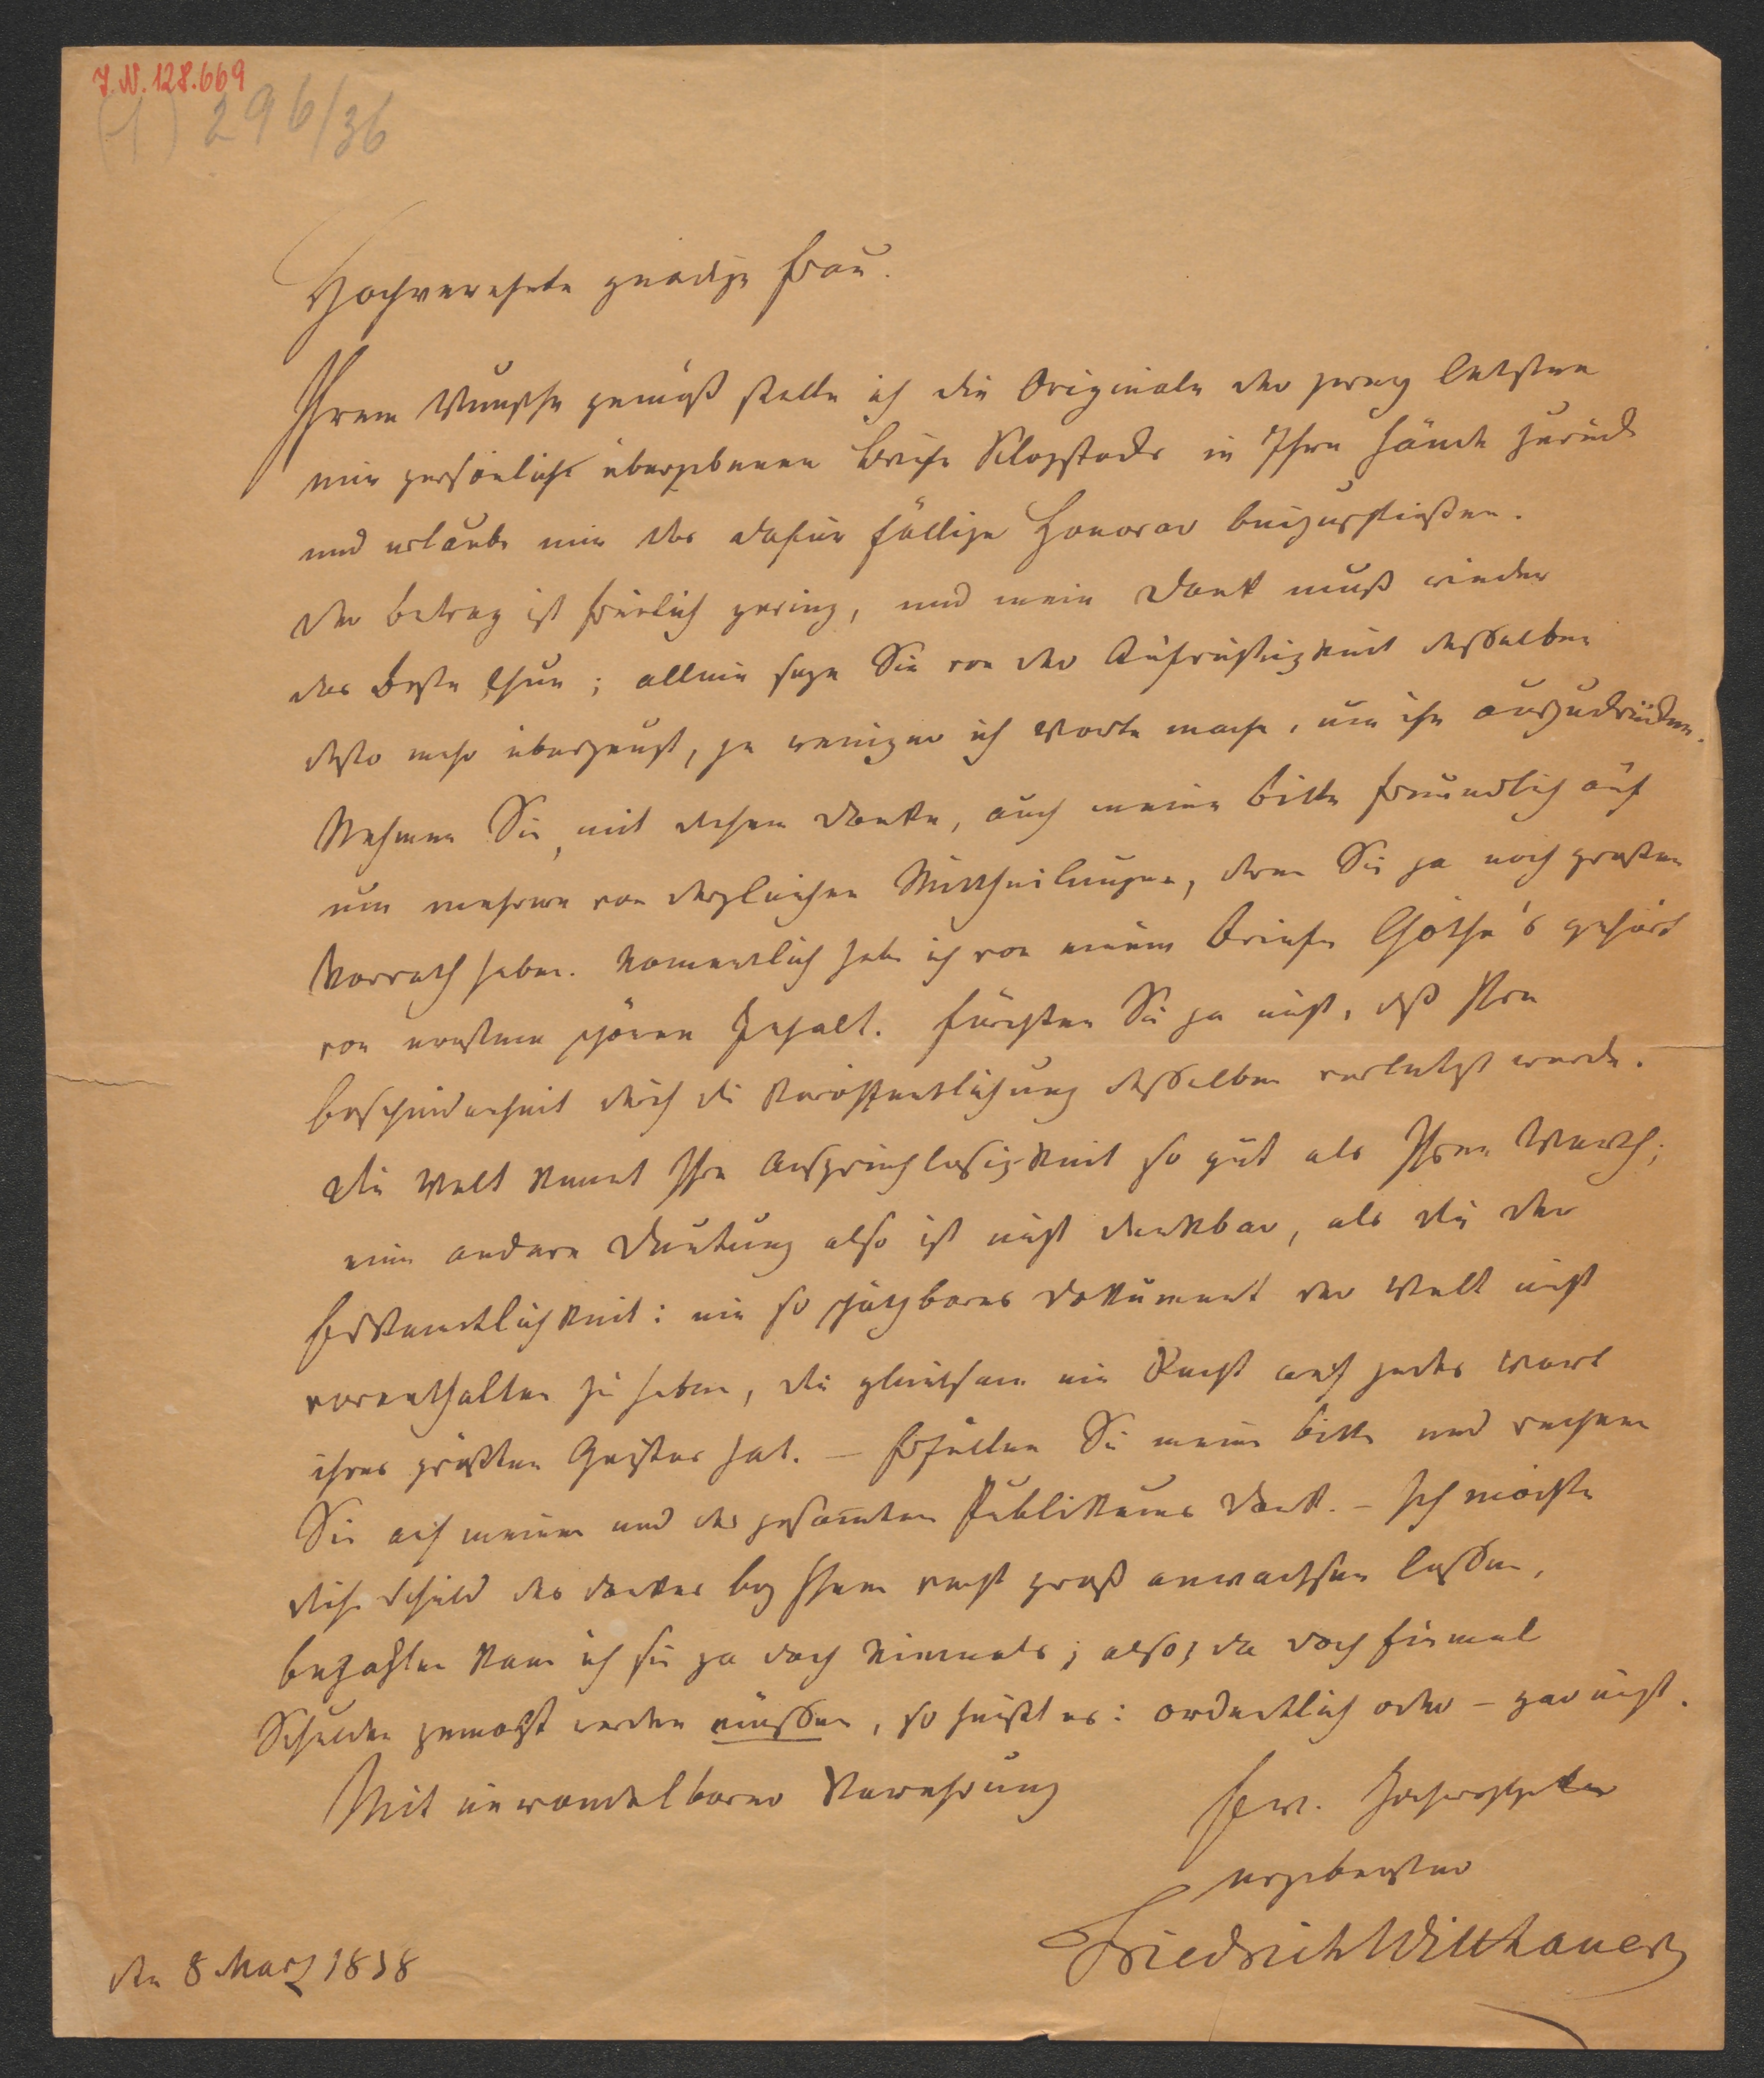 J. N. 128.669
(1) 296/36
Hochverehrte gnädige Frau.
Ihrem Wunsche gemäß stelle ich die Originale der zwey letzten
mir persönlich übergebenen Briefe Klopstocks in Ihre Hände zurück
und erlaube mir das dafür fällige Honorar beizuschließen.
Der Betrag ist freilich gering, und mein Dank muß wieder
das Beste thun; allein seyn Sie von der Aufrichtigkeit desselben
desto mehr überzeugt, je weniger ich Worte mache, um ihn auszudrücken.
Nehmen Sie, mit diesem Danke, auch meine Bitte freundlich auf
um mehrere von dergleichen Mittheilungen, deren Sie ja noch großen
Vorrath haben. Namentlich habe ich von einem Briefe Göthe's gehört
von ernstem schönen Inhalt. Fürchten Sie ja nicht, daß Ihre
Bescheidenheit durch die Veröffentlichung desselben verletzt werde.
Die Welt kennt Ihre Anspruchlosigkeit so gut als Ihren Werth;
eine andere Deutung also ist nicht denkbar, als die der
Erkenntlichkeit: ein so schätzbares Dokument der Welt nicht
vorenthalten zu haben, die gleichsam ein Recht auf jedes Wort
ihres größten Geistes hat. – Erfüllen Sie meine Bitte und rechnen
Sie auf meinen und des gesam̅ten Publikums Dank. – Ich möchte
diese Schuld des Dankes bey Ihnen recht groß anwachsen lassen,
bezahlen kann ich sie ja doch niemals; also, da doch einmal
Schulden gemacht werden müssen, so heißt es: ordentlich oder – gar nicht.
Mit unwandelbarer Verehrung
Ew.
ergebenster
Friedrich Witthauer
Den 8 März 1838